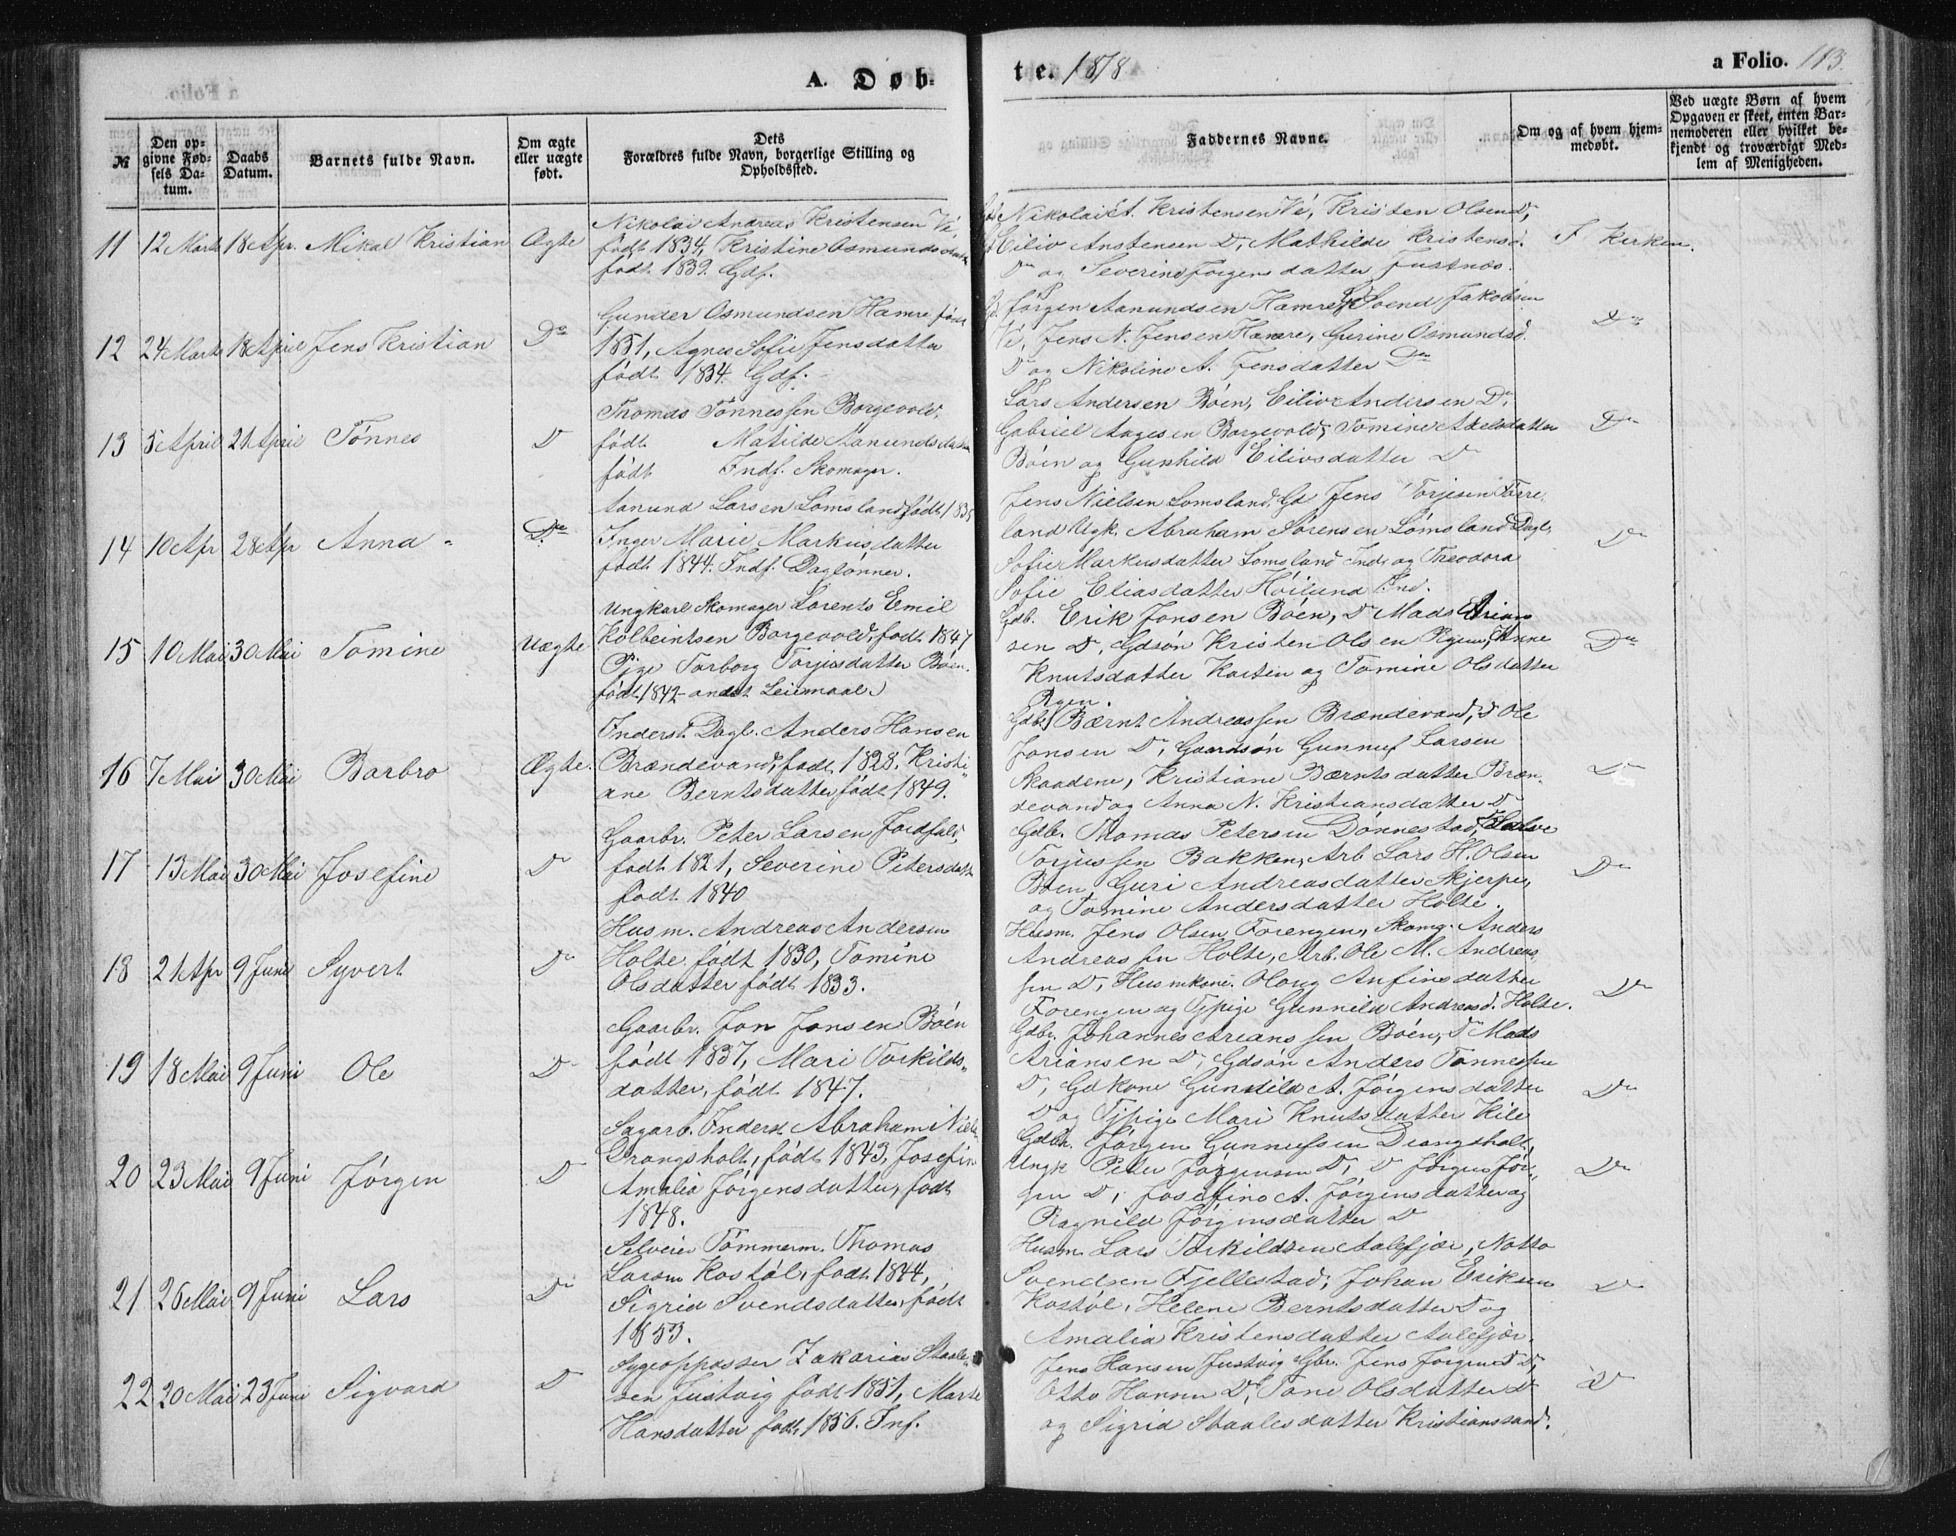 A. Døb-
te. 1878
a Folio. 113.
№
Den opgivne Fødsels Datum.
Daabs Datum.
Barnets fulde Navn.
Om ægte eller uægte født.
Dets Forældres fulde Navn, borgerlige Stilling og Opholdssted.
Faddernes Navne.
Om og af hvem hjemmedøbt.
Ved uægte Børn af hvem Opgaven er skeet, enten Barnemoderen eller hvilket bekjendt og troværdigt Medlem af Menigheden.
11 12 Marts 18 Apr. Mikal Kristian Ægte
Nikolai Andreas Kristensen Vé,
født 1834, Kristine Osmundsdatter
født 1839. Gdf.
Nikolai A. Kristensen Vé, Kristen Olsen D,
Eiliv Anstensen D, Mathilde Kristensd.
Dº og Severine Jørgensdatter Justnæs.
I Kirken.
12 24 Marts 18 April Jens Kristian Dº
Gunder Osmundsen Hamre født
1831, Agnes Sofie Jensdatter
født 1834. Gdf.
Jørgen Aanundsen Hamre, Svend Jakobsen
Vé, Jens N. Jensen Hamre, Gurine Osmundsd.
D og Nikoline A. Jensdatter Dº
Dº
13 5 April 21 April Tønnes D
Thomas Tønnessen Borgevold.
født Matilde Aanundsdatter
født Indf. Skomager.
Lars Andersen Boen, Eiliv Andersen D,
Gabriel Aagesen Borgevold, Tomine Axelsdatter
Boen og Gunhild Eilivsdatter D
Dº
14 10 Apr 28 Apr Anna Dº
Aanund Larsen Lømsland født 1835
Inger Marie Markusdatter
født 1844. Indf. Daglønner.
Jens Nielsen Lomsland, Gd Jens Torjesen Torre-
land Ugk. Abraham Sørensen Lømsland Dagl.
Sofie Markusdatter Lomsland Ind. og Theodora
Sofie Eliasdatter Høilund Ind.
Dº
15 10 Mai 30 Mai Tomine Uægte
Ungkarl Skomager Lorents Emil
Kolbeintsen Borgevold, født 1847
Pige Torborg Torjusdatter Boen.
født 1842 - andet Leiermaal.
Gdb. Erik Jonsen Boen, D Mads Arian-
sen D, Gdsøn Kristen Olsen Rgen, Anne
Knutsdatter Kosten og Tomine Olsdatter
Rgen.
Dº
16 7 Mai 30 Mai Barbro Ægte.
Inderst. Dagl. Anders Hansen
Brændevand, født 1828. Kristi-
ane Berntsdatter født 1849.
Gdb. Bærnt Andreassen Brændevand, D Ole
Jonsen D, Gaardsøn Gunnuf Larsen
Skaadene, Kristiane Bærntsdatter Bræn-
devand og Anna N. Kristiansdatter D
D
17 13 Mai 30 Mai Josefine D
Gaarbr. Peter Larsen Jordfald,
født 1821, Severine Petersdatter
født 1840
Gdb. Thomas Petersen Dønnestad, Halve
Torjussen Bakken, Arb Lars H. Olsen
Boen, Guri Andreasdatter Skjerpe,
og Tomine Andersdatter Holte.
Dº
18 21 Apr 9 Juni Syvert D
Husm. Andreas Andersen
Holte født 1830, Tomine
Olsdatter født 1833.
Husm. Jens Olsen Forengen, Skomg. Anders
Andreassen Holte, Arb. Ole M. Andreas-
sen D, Husmkone Oloug Anfinsdatter
Forengen og Tjpige Gunnild Andreasd. Holte.
Dº
19 18 Mai 9 Juni Ole D
Gaarbr. Jon Jonsen Boen
født 1837, Mari Torkilds-
datter, født 1847.
Gdbr. Johannes Arianssen Boen, D Mads
Ariansen D, Gdsøn Anders Tønnessen
D, Gdkone Gunnild A. Jørgensdatter
D og Tjpige Mari Knutsdatter Kile
Dº
20 23 Mai 9 Juni Jørgen D
Sagarb. Inderst Abraham Niels.
Drangsholt, født 1843, Josefine
Amalia Jørgensdatter, født
1848.
Gdbr. Jørgen Gunnufsen Drangsholt,
Ungk Peter Jørgensen D, D Jørgen Jør-
gen D, Josefine A. Jørgensdatter og
Ragnild Jørgensdatter D
Dº
21 26 Mai 9 Juni Lars D
Selveier Tømmerm. Thomas
Larsen Kostøl, født 1844,
Sigrid Svendsdatter, født
1853.
Husm Lars Torkildsen Aalefjær, Notto
Svendsen Fjellestad, Johan Eriksen
Kostøl, Helene Berntsdatter D og
Amalia Kristensdatter Aalefjær.
D
22 20 Mai 23 Juni Sigvard D
Sygeopasser Zakarias Staale-
sen Justvig født 1851, Marte
Hansdatter født 1856. Inf.
Jens Hansen Justvig Gbr. Jens Jørgensen D,
Otto Hansen D, Tone Olsdatter D
og Sigrid Staalesdatter Kristianssand.
D